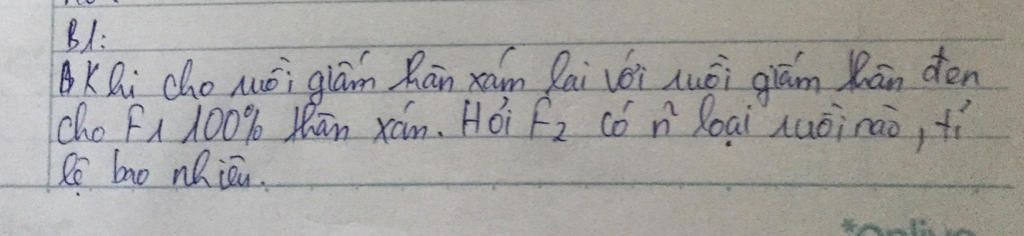 B1:
Khi cho ruồi giấm thân xám lai với ruồi giấm thân đen
cho F1 100% thân xám. Hỏi F2 có n~ loại ruồi nào, tỉ
lệ bao nhiêu.